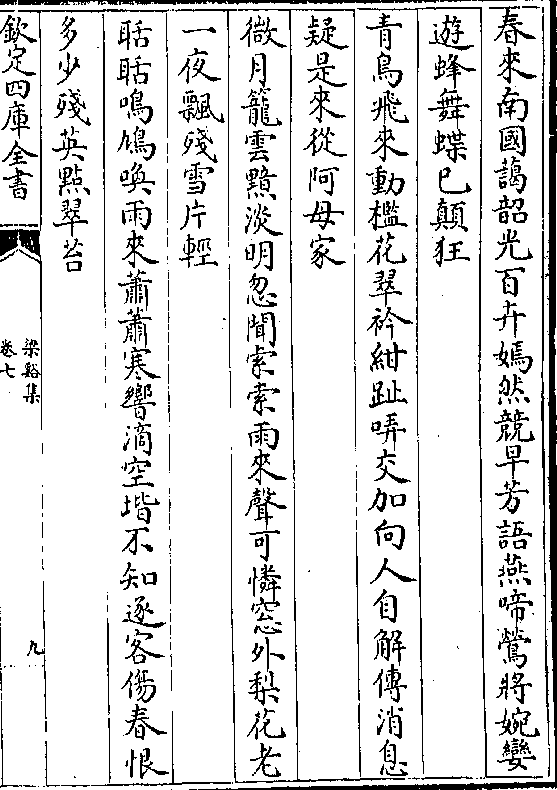 春來南國藹韶光百卉嫣然競早芳語燕啼鶯將婉孌
遊蜂舞蝶已顛狂
青鳥飛來動檻花翠衿紺趾哢交加向人自解傳消息
疑是來從阿母家
微月籠雲黯淡明忽聞索索雨來聲可憐窓外梨花老
一夜飄殘雪片輕
聒聒鳴鳩喚雨來蕭蕭寒響滴空堦不知逐客傷春恨
多少殘英點翠苔
欽定四庫全書
梁谿集
卷七
九